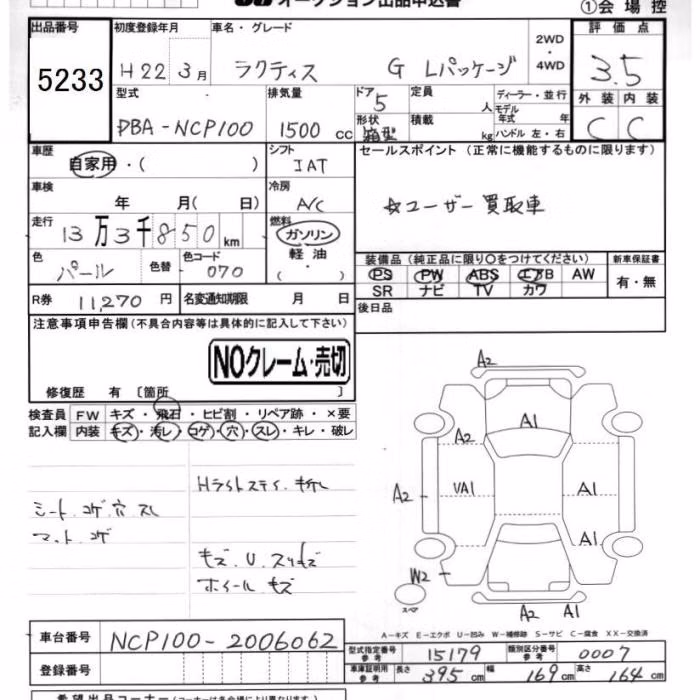 オークション出品申込書
①会場控
出品番号 5233
初度登録年月 H22 3月
車名・グレード ラクティス G Lパッケージ
2WD・4WD
評価点 3.5
外装 内装
C C
型式 DBA-NCP100
排気量 1500cc
ドア 5
形状 箱型
定員 人
積載 kg
ディーラー・並行
モデル年式 年
ハンドル 左・右
車歴 自家用・( )
シフト IAT
セールスポイント (正常に機能するものに限ります)
☆ユーザー買取車
車検 年 月( 日)
冷房 A/C
走行 13万3千850km
燃料 ガソリン 軽油 ・( )
色 パール
色替
色コード 070
装備品 (純正品に限り○をつけてください)
PS PW ABS エアB AW
SR ナビ TV カワ
新車保証書
有・無
R券 11,270円
名変通知期限 月 日
後日品
注意事項申告欄(不具合内容等は具体的に記入して下さい)
NOクレーム・売切
修復歴 有 〔箇所 〕
検査員記入欄
FW キズ・飛石・ヒビ割・リペア跡・×要
内装 キズ・汚レ・コゲ・穴・スレ・キレ・破レ
Hライトステイ.キレ
シート.コゲ.穴.スレ
マット.コゲ
キズ.U.スリキズ
ホイールキズ
A2
A1
A2
A2
VA1
A1
A1
W2
スペア
A2 A1
A-キズ E-エクボ U-凹み W-補修跡 S-サビ C-腐食 XX-交換済
車台番号 NCP100-2006062
登録番号
型式指定番号 参考 15179
類別区分番号 参考 0007
車庫証明用 参考 長さ 395cm 幅 169cm 高さ 164cm
希望出品コーナー